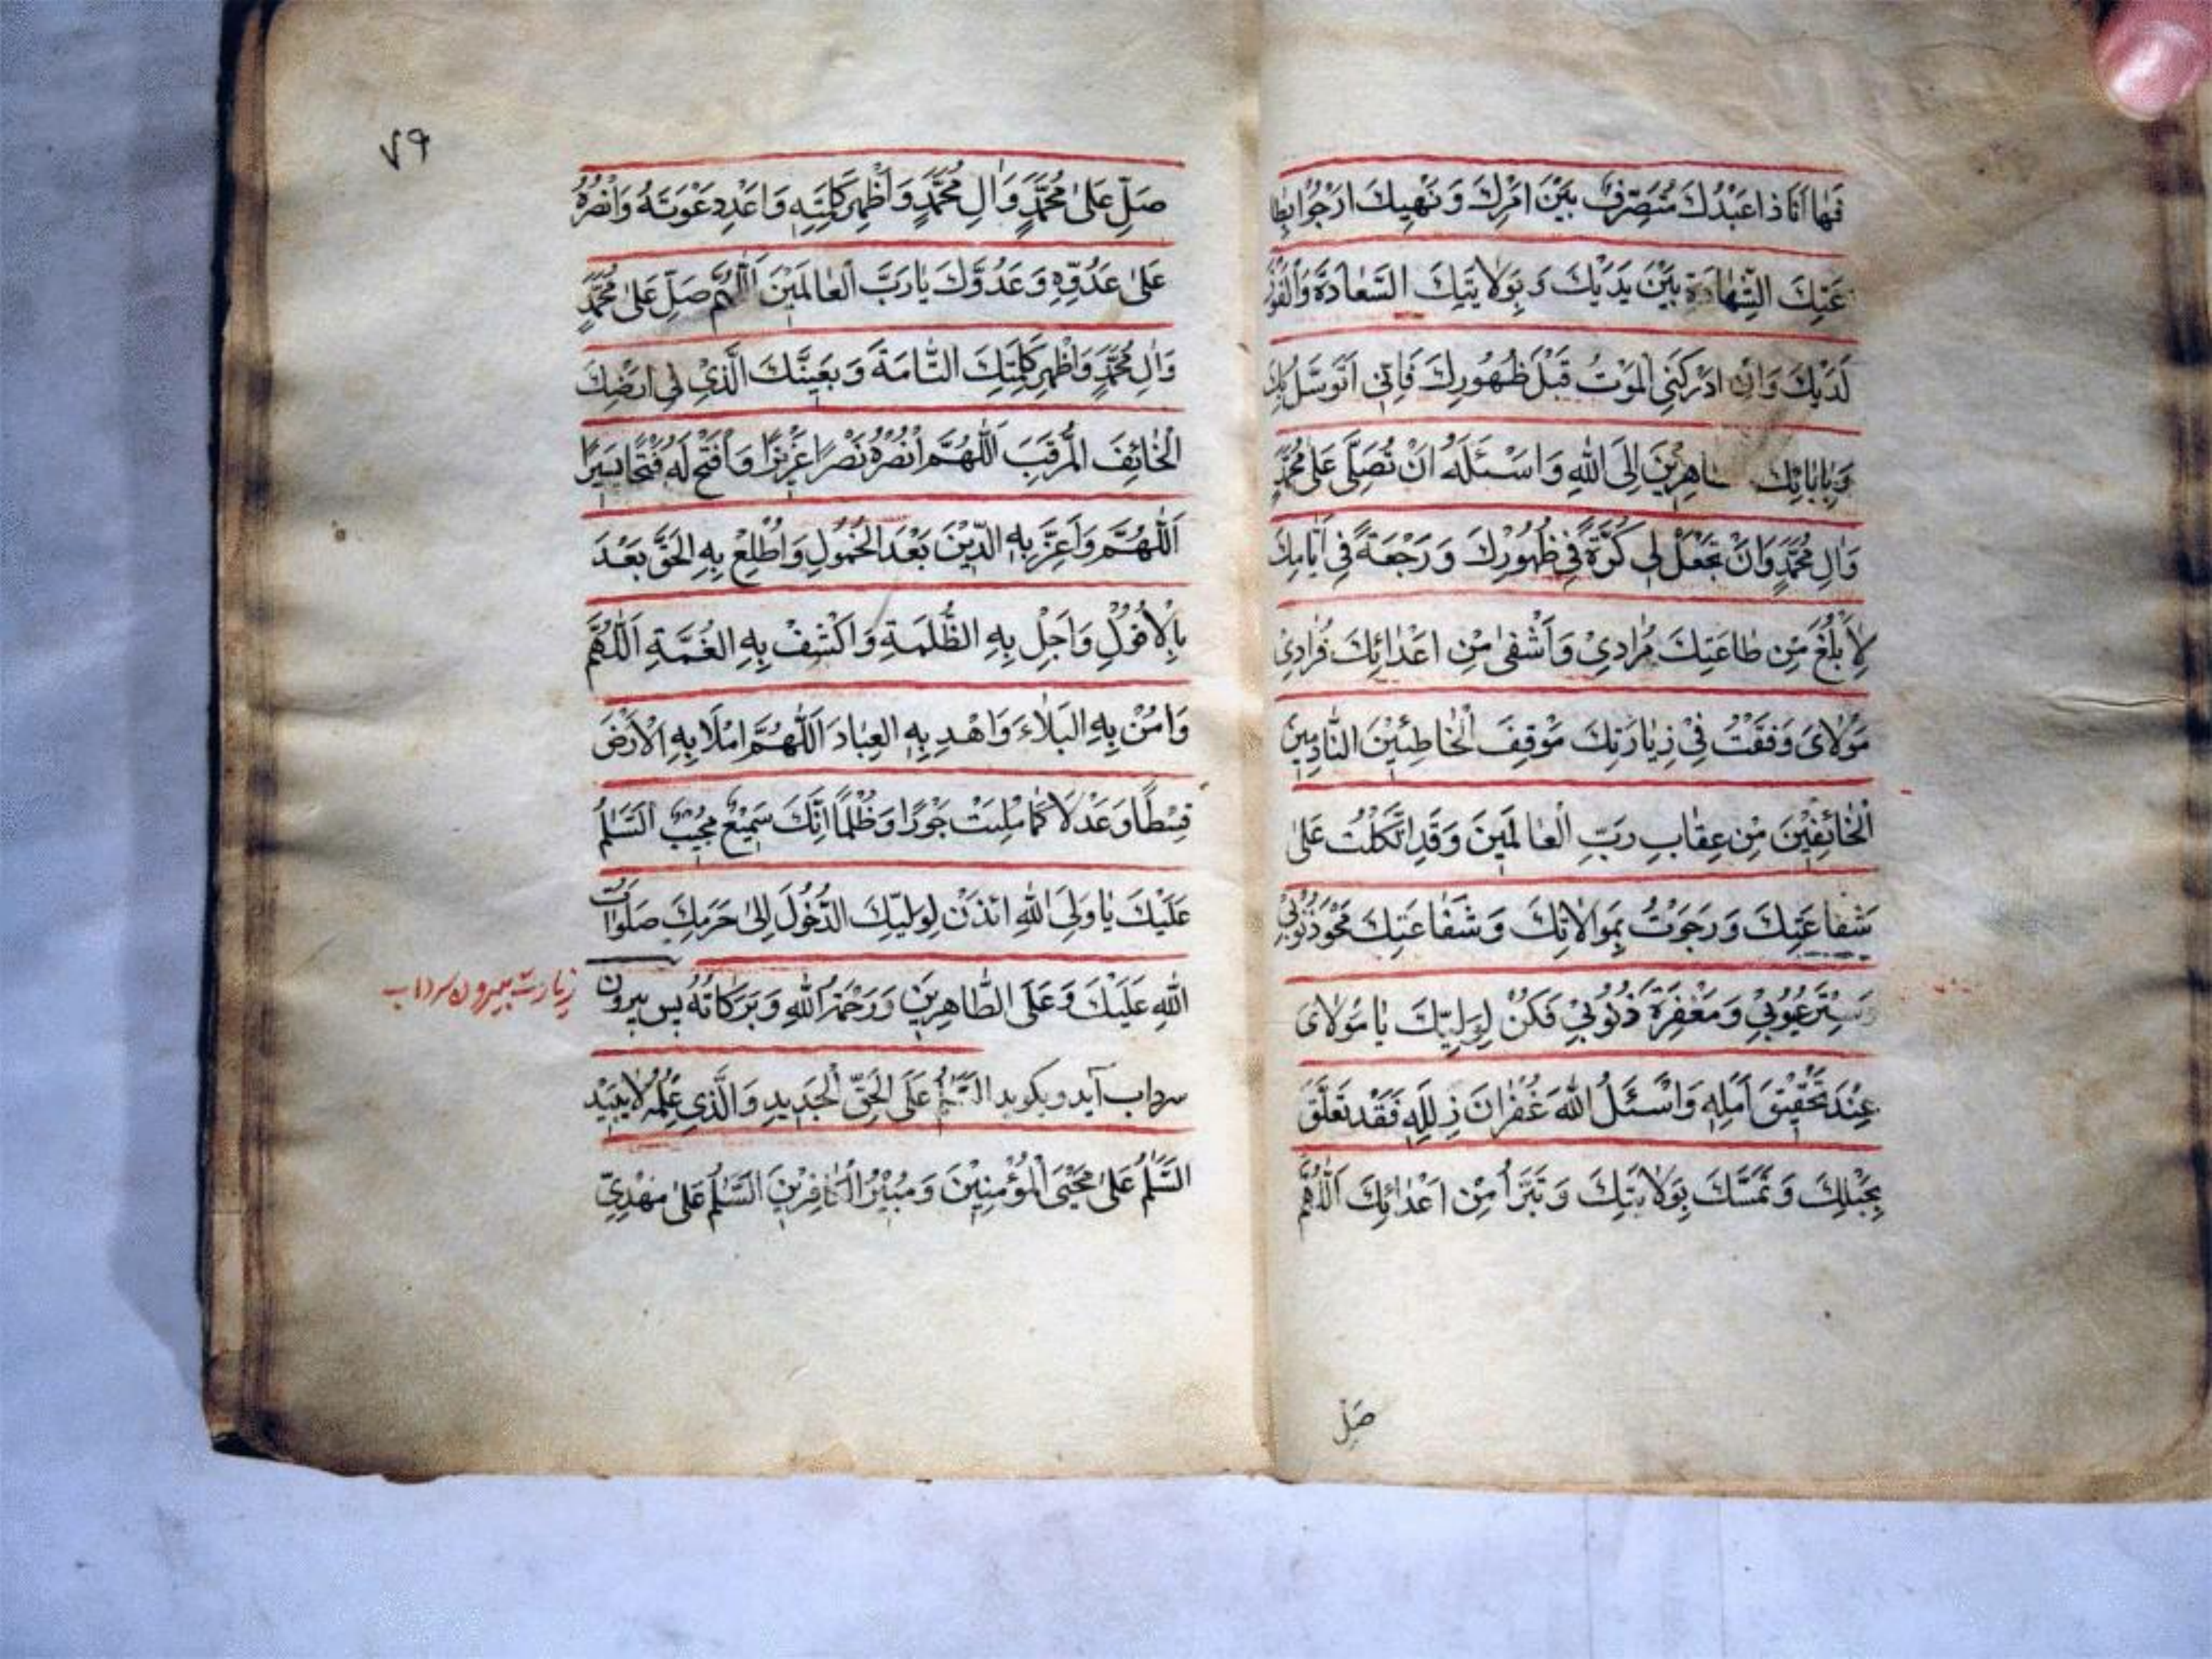 فَهٰا اَنَا ذا عَبْدُكَ مُتَصَرِّفٌ بَيْنَ اَمْرِكَ وَ نَهْيِكَ اَرْجُوا بِطا
عَتِكَ الشَّهٰادَةَ بَيْنَ يَدَيْكَ وَ بِوَلايَتِكَ السَّعٰادَةَ وَالْفَوْزَ
لَدَيْكَ وَاِنْ اَدْرَكَنِي الْمَوْتُ قَبْلَ ظُهُورِكَ فَاِنّي اَتَوَسَّلُ بِكَ
وَبِاٰبٰائِكَ اهِرِيْنَ اِلَى اللّٰهِ وَاَسْئَلُهُ اَنْ تُصَلِّيَ عَلىٰ مُحَمَّدٍ
وَاٰلِ مُحَمَّدٍ وَاَنْ تَجْعَلَ لي كَرَّةً في ظُهُورِكَ وَ رَجْعَةً في اَيّٰامِكَ
لِاَبْلُغَ مِنْ طاعَتِكَ مُرٰادِيْ وَاَشْفىٰ مِنْ اَعْدٰائِكَ فُرٰادِيْ
مَوْلٰايَ وَقَفْتُ فِيْ زِيٰارَتِكَ مَوْقِفَ الْخٰاطِئِيْنَ النّٰادِمِيْنَ
الْخٰائِفِيْنَ مِنْ عِقٰابِ رَبِّ الْعٰالَمِينَ وَقَدِ اتَّكَلْتُ عَلىٰ
شَفٰاعَتِكَ وَ رَجَوْتُ بِمَوٰالاتِكَ وَ شَفٰاعَتِكَ مَحْوَ ذُنُوبِيْ
وَسَتْرَ عُيُوبِيْ وَ مَغْفِرَةَ ذُنُوبِيْ فَكُنْ لِوَلِيِّكَ يٰا مَوْلايَ
عِنْدَ تَحْقِيْقِ اَمَلِهِ وَاَسْئَلُ اللّٰهَ غُفْرٰانَ ذِلَلِهِ فَقَدْ تَعَلَّقَ
بِحَبْلِكَ وَ تَمَسَّكَ بِوَلايَتِكَ وَ تَبَرَّأَ مِنْ اَعْدٰائِكَ اَللّٰهُمَّ
صَلِّ
٧٩
صَلِّ عَلىٰ مُحَمَّدٍ وَ اٰلِ مُحَمَّدٍ وَ اَظْهِرْ كَلِمَتِهِ وَ اَعْدِ دَعْوَتَهُ وَانْصُرْهُ
عَلىٰ عَدُوِّهِ وَ عَدُوِّكَ يٰا رَبَّ الْعٰالَمَيْنَ اَللّٰهُمَّ صَلِّ عَلىٰ مُحَمَّدٍ
وَاٰلِ مُحَمَّدٍ وَاَظْهِرْ كَلِمَتِكَ التّٰامَةَ وَ بَعْيِنَّكَ الَّذِيْ في اَرْضِكَ
الْخٰائِفَ الْمُرَقِبَ اَللّٰهُمَّ انْصُرْهُ نَصْرًا عَزِيْزًا وَافْتَحْ لَهُ فَتْحًا يَسيرًا
اَللّٰهُمَّ وَاَعِزَّ بِهِ الدِّيْنَ بَعْدَ الْخُمُولِ وَاَطْلِعْ بِهِ الْحَقَّ بَعْدَ
الْاُفُوْلِ وَاَجِلْ بِهِ الظُّلْمَةِ وَاكْشِفْ بِهِ الْغُمَّةِ اَللّٰهُمَّ
وَاٰمِنْ بِهِ الْبَلٰاءَ وَاهْدِ بِهِ الْعِبٰادَ اَللّٰهُمَّ امْلَأْ بِهِ الْاَرْضَ
قِسْطًا وَعَدْلًا كَمٰا مُلِئَتْ جَوْرًا وَ ظُلْمًا اِنَّكَ سَمِيْعٌ مُجِيْبٌ اَلسَّلٰمُ
عَلَيْكَ يٰا وَلِيَّ اللّٰهِ ائْذَنْ لِوَلِيِّكَ الدُّخُولَ اِلىٰ حَرَمِكَ صَلَوٰاتُ
اللّٰهِ عَلَيْكَ وَ عَلَى الطّٰاهِرِيْنَ وَ رَحْمَةُ اللّٰهِ وَ بَرَكٰاتُهُ پس بيرون
زيارت بيرون سرداب
سرداب آيد و بكويد السَّلٰمُ عَلَى الْحَقِّ الْجَدِيدِ وَالَّذي عِلْمُهُ لٰا يَبِيْدُ
السَّلٰمُ عَلىٰ مُحْيِي الْمُؤْمِنِيْنَ وَ مُبِيْرُ الْكٰافِرِيْنَ السَّلٰمُ عَلىٰ مَهْدِيِّ